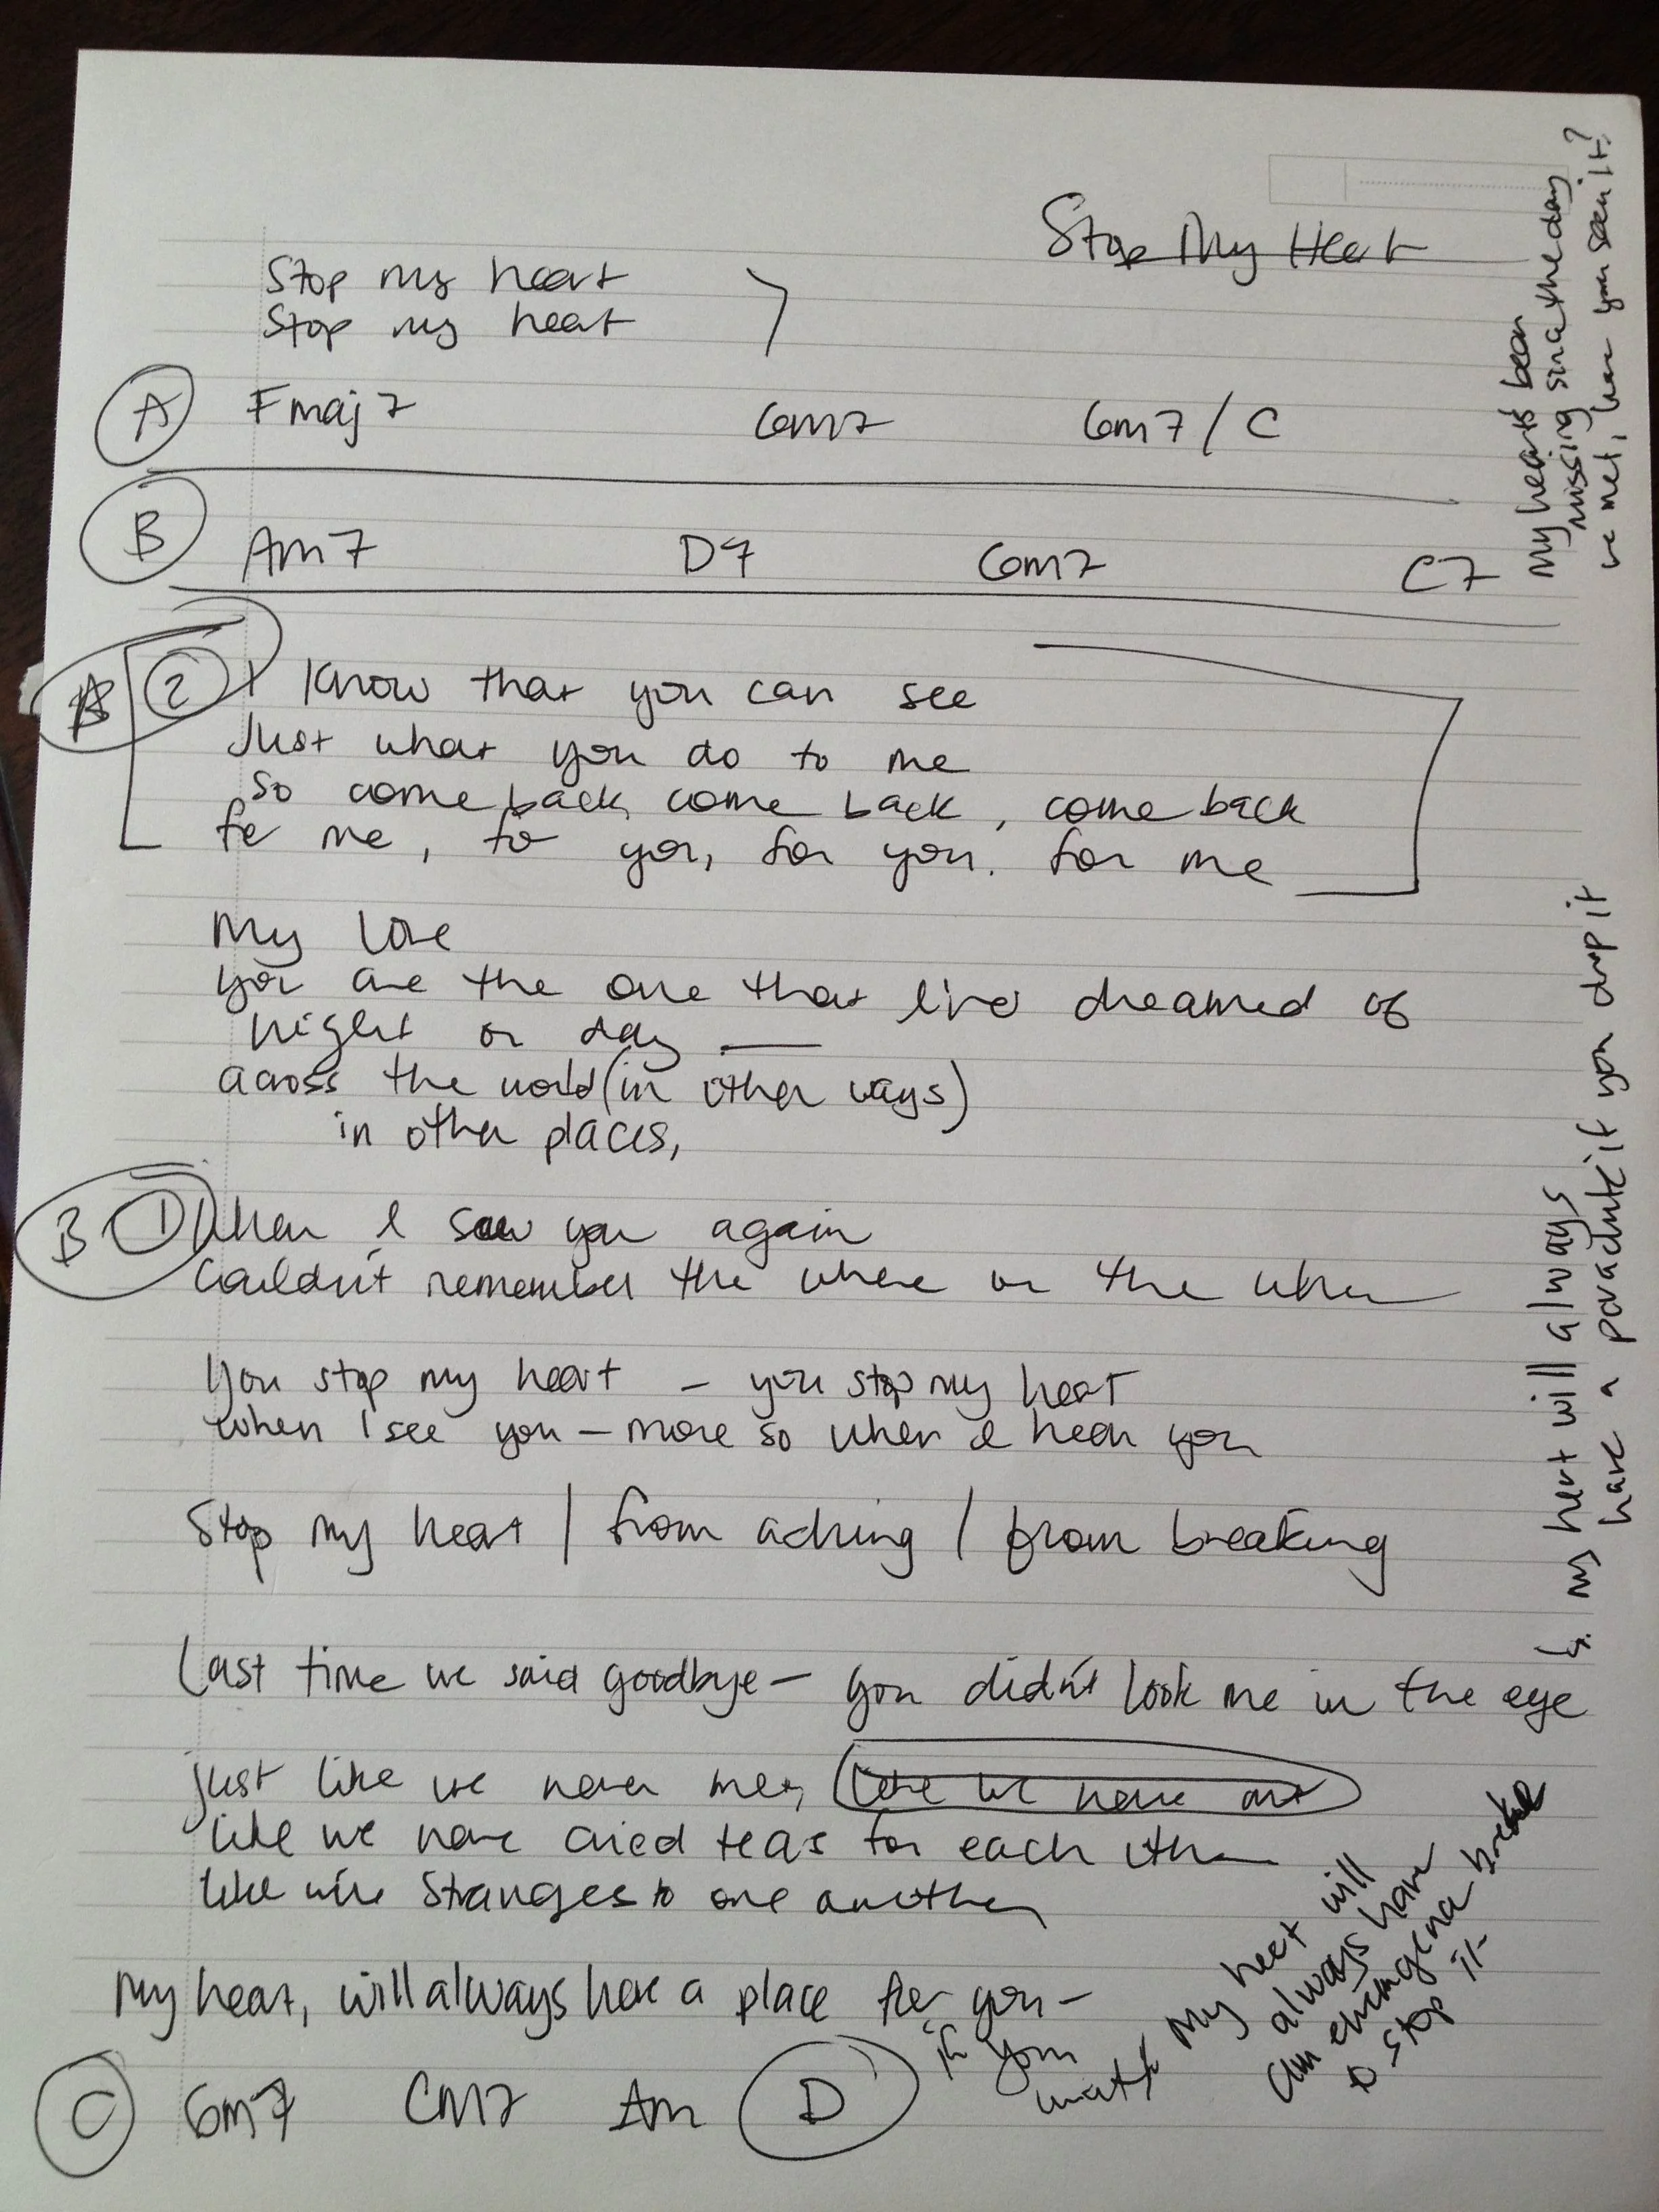 Stop My Heart
Stop my heart
Stop my heart
A Fmaj7 Gm7 Gm7/C
B Am7 D9 Gm7 C7
A 2 I know that you can see
Just what you do to me
so come back, come back, come back
for me, to you, for you. for me
My love
you are the one that I've dreamed of
night or day —
across the world (in other ways)
in other places,
B 1 When I saw you again
Couldn't remember the where or the when
You stop my heart – you stop my heart
when I see you – more so when I hear you
Stop my heart / from aching / from breaking
Last time we said goodbye – you didn't look me in the eye
just like we never met, like we never met
like we never cried tears for each other
like we're strangers to one another
My heart, will always have a place for you –
if you want it
C Gm7 CM7 Am D
My heart's been
missing since the day
we met, have you seen it?
my heart will always
have a parachute if you drop it
My heart will
always have
an emergency brake
to stop it